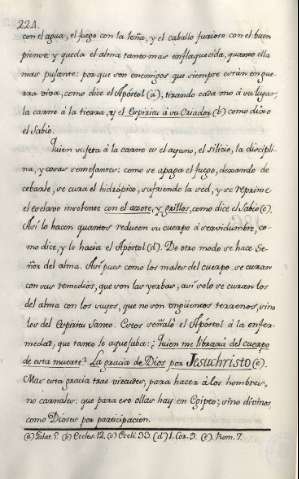 224.
con el agua, el fuego con la leña, y el caballo furioso con el buen
pienso: y queda el alma tanto mas enflaquecida, quanto ella
mas pujante: por que son enemigos que siempre están en gue-
rra viva, como dice el Apóstol (a), tirando cada uno á su lugar;
la carne á la tierra, y el Espiritu á su Criador (b) como dixo
el Sabio.
Quien sujeta á la carne es el ayuno, el silicio, la discipli-
na, y cosas semejantes: como se apaga el fuego, dexando de
cebarle, se cura el hidrópico, sufriendo la sed, y se reprime
el esclavo insolente con el azote, y grillos, como dice el Sabio (c).
Asi lo hacen quantos reducen su cuerpo á servidumbre, co-
mo dice, y lo hacia el Apóstol (d). De otro modo se hace Se-
ñor del alma. Asi pues como los males del cuerpo se curan
con sus remedios, que son las yerbas, asi solo se curan los
del alma con los suyos, que no son ungüentos terrenos, sino
los del Espiritu Santo. Estos señaló el Apóstol á la enfer-
medad, que tanto le aquejaba: ¿Quien me librará del cuerpo
de esta muerte? La gracia de Dios por Jesuchristo (e).
Mas esta gracia trae virtudes, para hacer á los hombres,
no carnales: que para eso ollas hay en Egipto; sino divinos,
como Dioses por participacion.
(a) Galat. 5. (b) Eccles. 12. (c) Eccli. 33. (d) 1. Cor. 9. (e) Rom. 7.